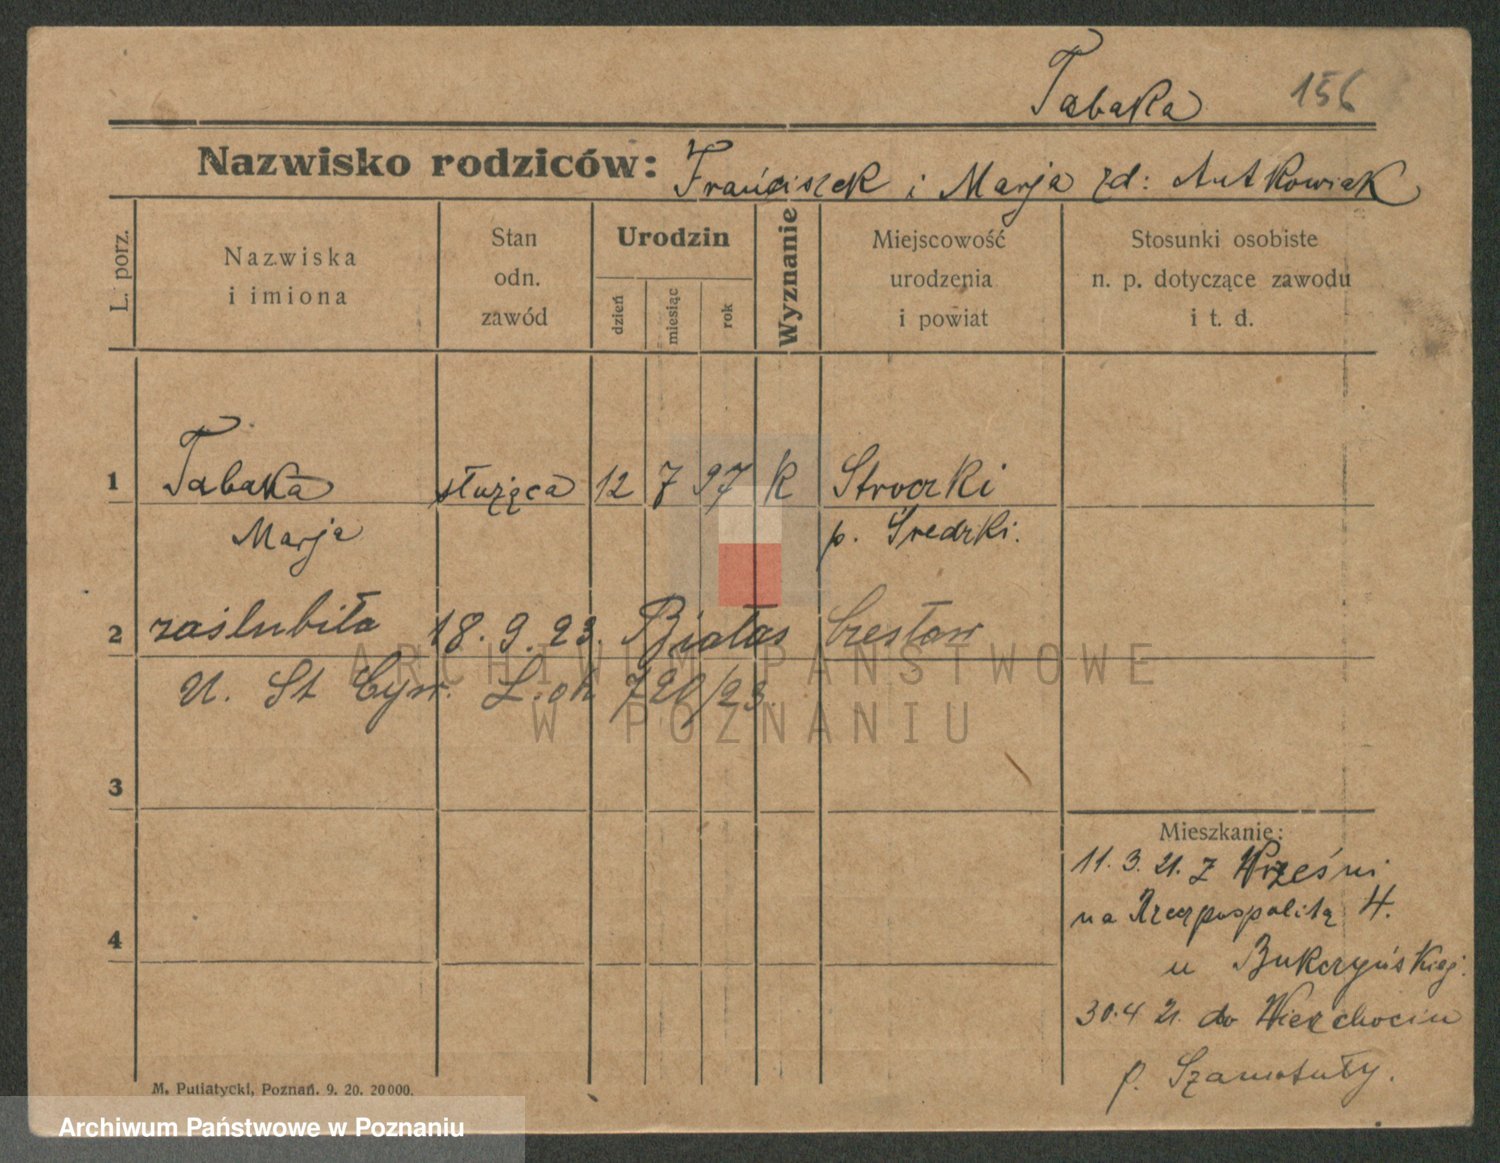 Tabaka 156
Nazwisko rodziców: Franciszek i Marja zd: Antkowiak
L. porz.
Nazwiska i imiona
Stan odn. zawód
Urodzin
dzień
miesiąc
rok
Wyznanie
Miejscowość urodzenia i powiat
Stosunki osobiste n. p. dotyczące zawodu i t. d.
1 Tabaka służąca 12 7 97 k Stroczki
Marja p. Średzki.
2 zaślubiła 18. 9. 23. Białas Czesław
U. St Cyw. L. 720/23
ARCHIWUM PAŃSTWOWE
W POZNANIU
3
Mieszkanie:
11. 3. 21. z Wrześni
na Rzeczpospolitą 4.
4
u Bukczyńskiej.
30.4 21. do Wierzchocin
p. Szamotuły.
M. Putiatycki, Poznań. 9. 20. 20000.
Archiwum Państwowe w Poznaniu